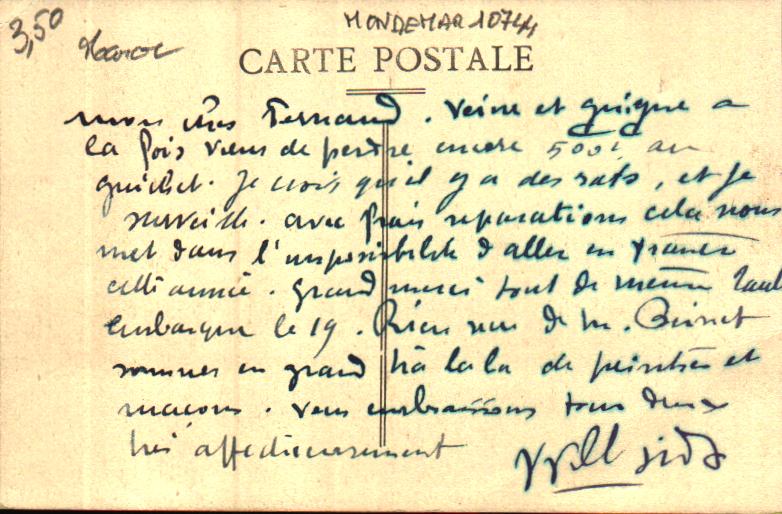 3,50
Maroc
MONDEMAR 10744
CARTE POSTALE
mon cher Fernand. Veine et guigne a
la fois viens de perdre encore 500f au
guichet. Je crois qu'il y a des rats, et je
surveille. avec frais reparations cela nous
met dans l'impossibilité d'aller en France
cette année. grand merci tout de meme Paul
embarque le 19. Rien reçu de m.
sommes en grand tra la la de peintres et
macons. vous embrassons tous deux
très affectueusement